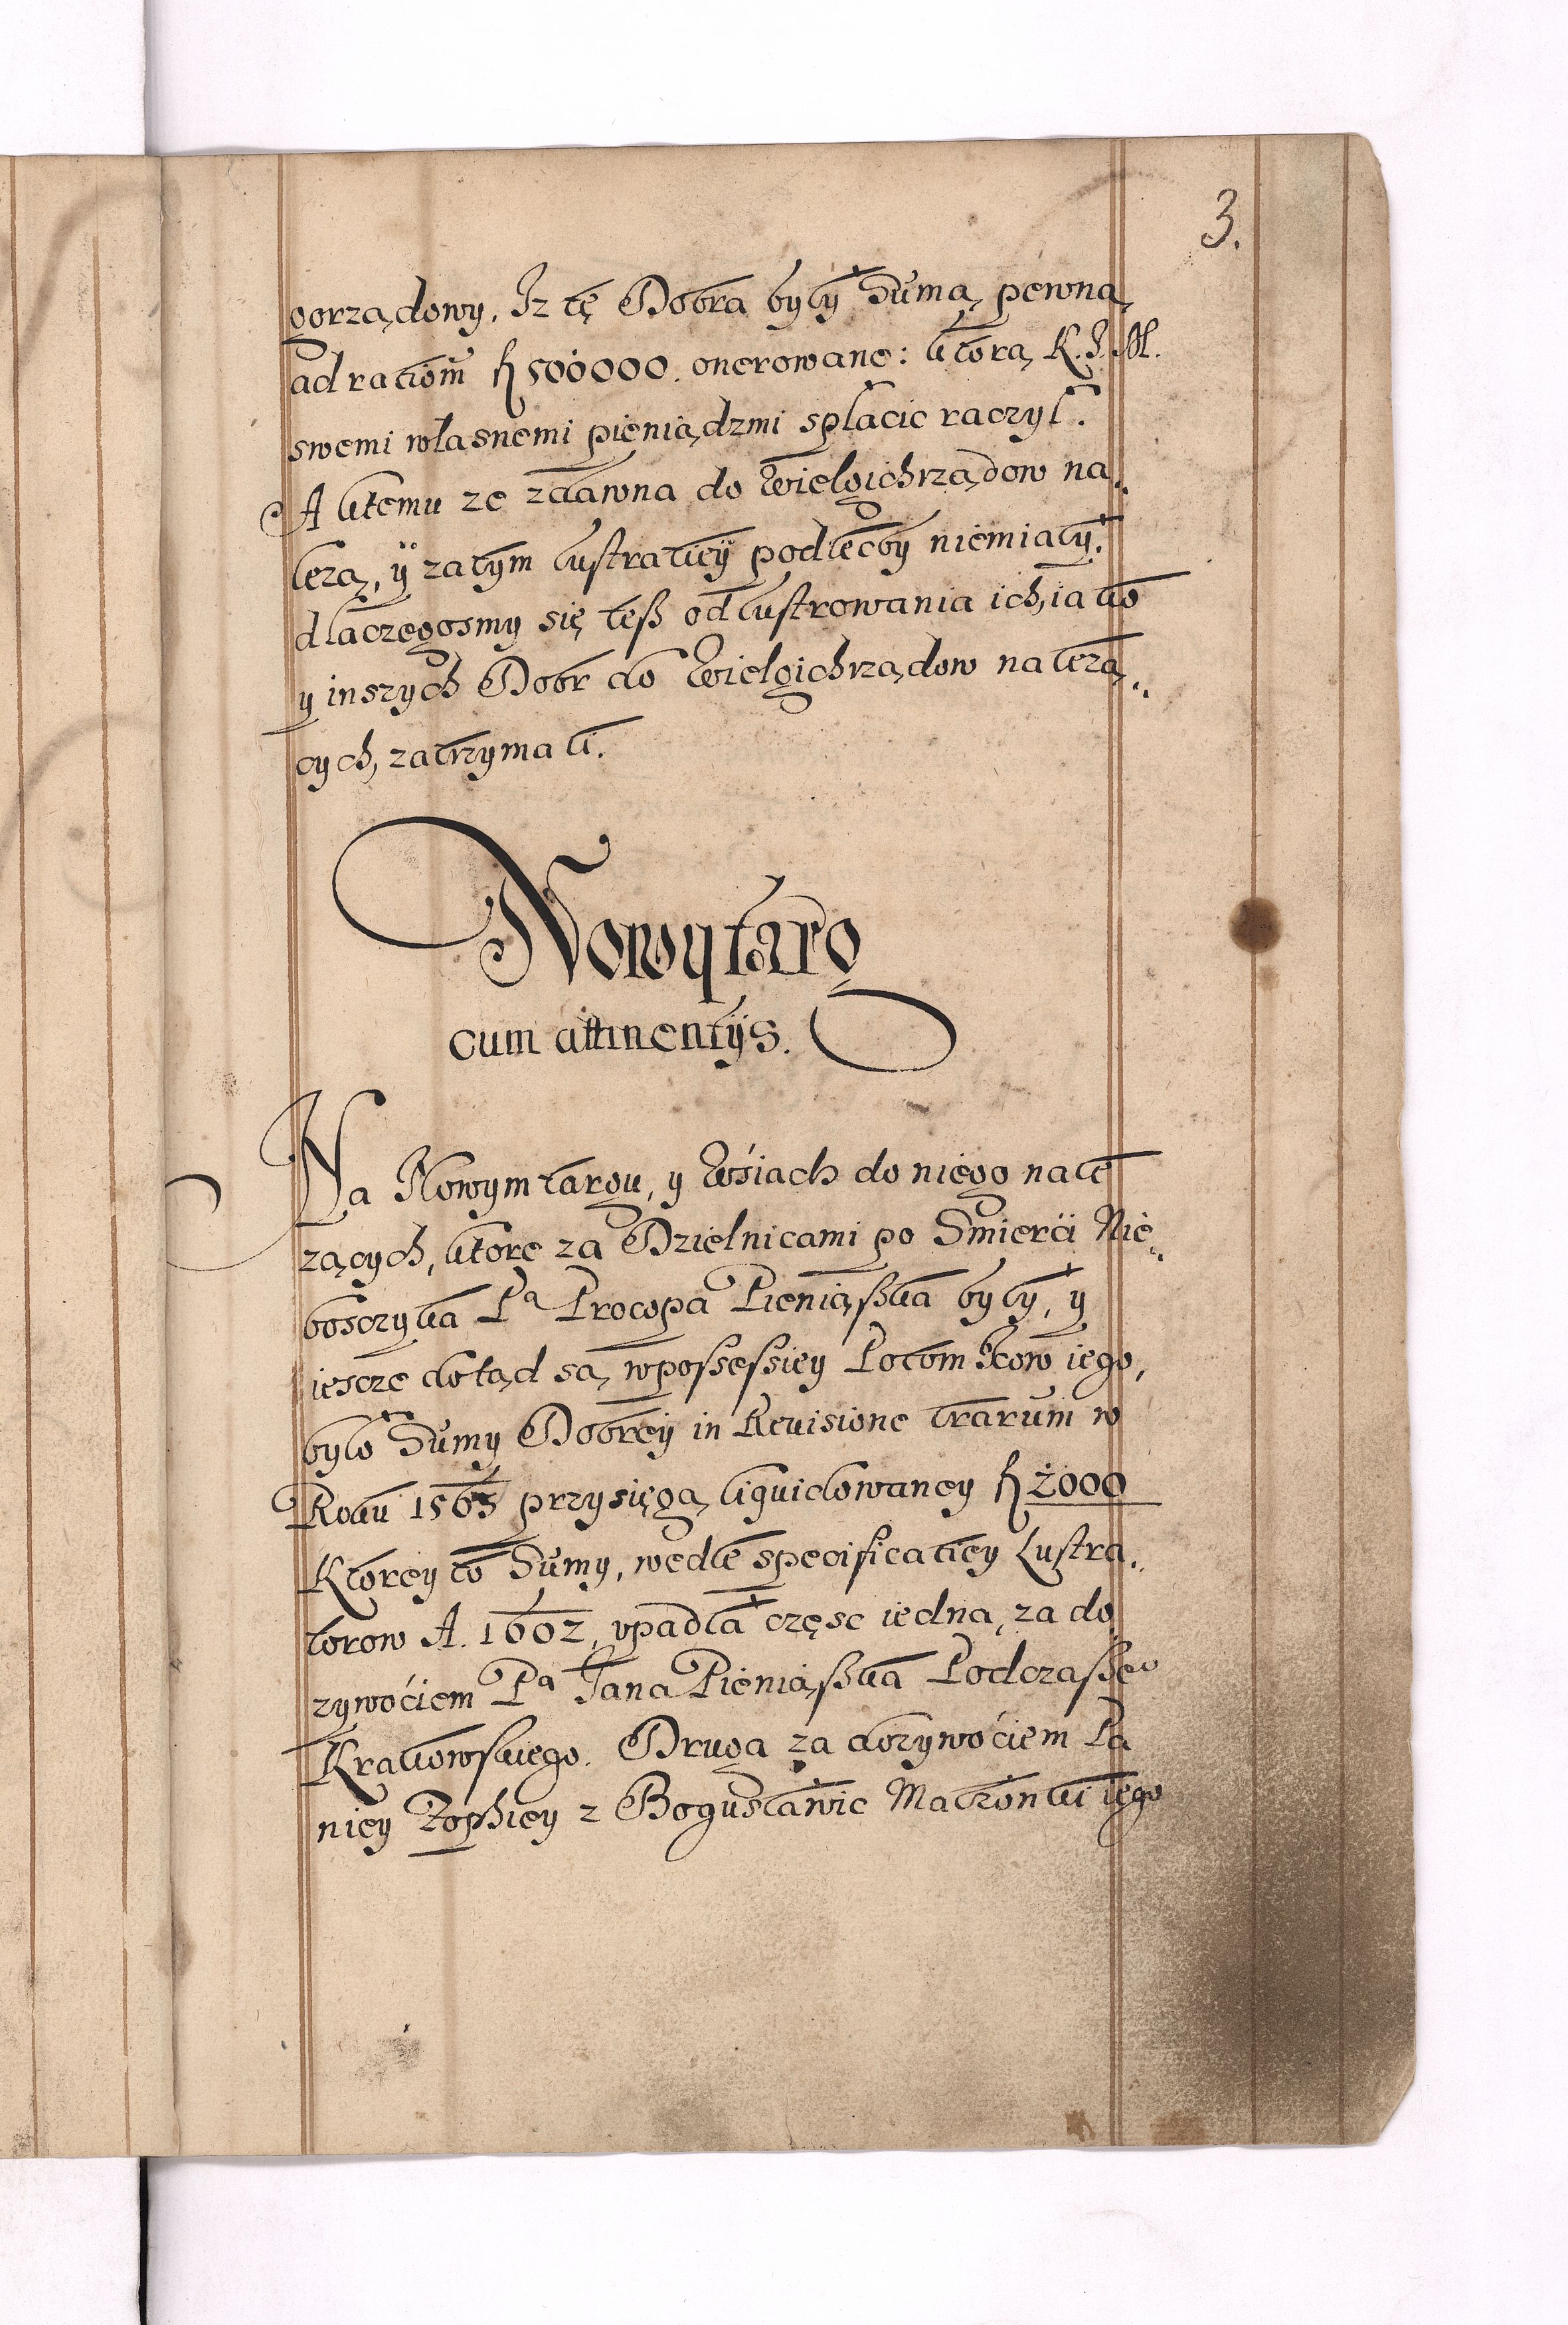 3.
gorządowy. Iz tę Dobra były Sumą pewną
ad rationem fl 500000. onerowane: ktorą K. J. M.
swemi własnemi pieniądzmi spłacic raczył.
A ktemu ze zdawna do Wielgichrządow na„
lezą, ÿ zatym lustratieÿ podlecby niemiały.
dlaczegosmy się tesz od lustrowania ich, iako
y inszych Dobr do Wielgichrządow nalezą„
cych, zatrzymali.
Nowytarg
cum attinentijs.
Na Nowymtargu, y Wśiach do niego nale
zących, ktore za Dzielnicami po Smierći Nie„
bosczyka Pa Procopa Pieniąszka były, y
iescze dotąd są, w possessiey Potomkow iego,
było Sumy Dobreÿ in Reuisione lrarum w
Roku 1563 przysięgą liquidowaney fl 2000
Ktorey to Sumy, wedle specificatiey Lustra„
torow A. 1602, vpadła częsc iedna, za do
zywoćiem Pa Jana Pieniąszka Podczasze°
Krakowskiego. Druga za dozywoćiem Pa
niey Zophiey z Bogusławic Małzonki iego